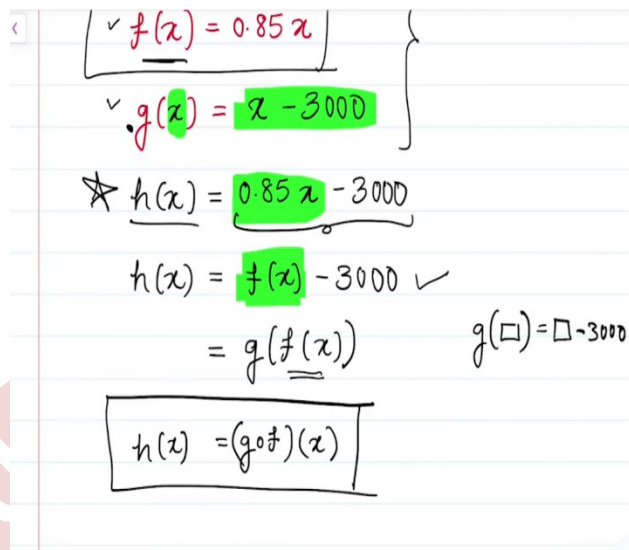 ✓ f(x) = 0.85 x
✓ g(x) = x - 3000
☆ h(x) = 0.85 x - 3000
h(x) = f(x) - 3000 ✓
= g(f(x))
g(□) = □ - 3000
h(x) = (g∘f)(x)